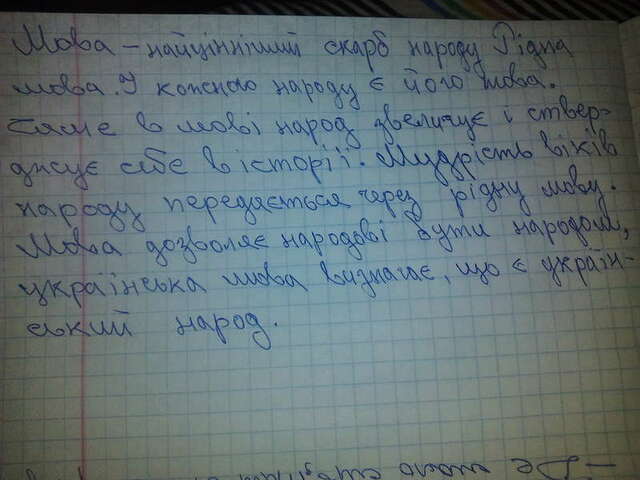 Мова – найцінніший скарб народу Рідна
мова. У кожного народу є його мова.
саме в мові народ звеличує і ствер-
джує себе в історії. Мудрість віків
народу передається через рідну мову.
Мова дозволяє народові бути народом,
українська мова визначає, що є україн-
ський народ.